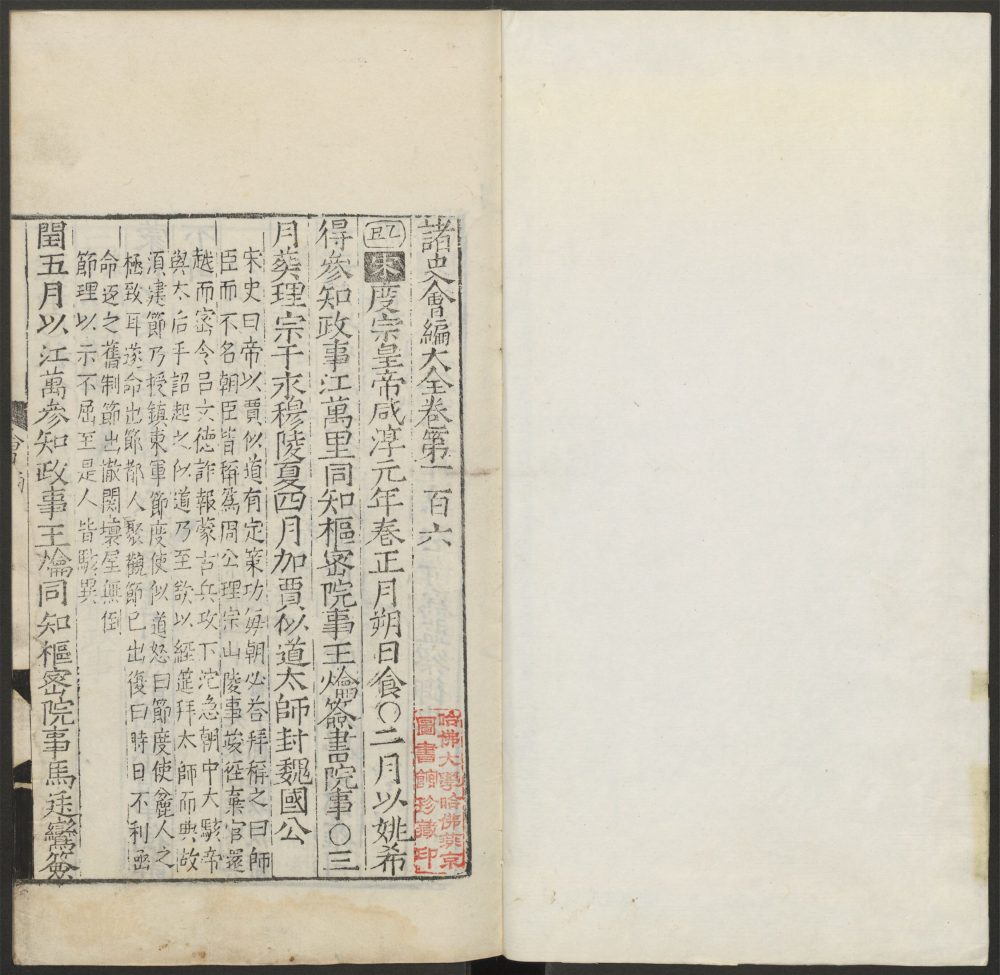 諸史會編大全卷第一百六
乙丑 宋度宗皇帝咸淳元年春正月朔日食〇二月以姚希
得參知政事江萬里同知樞密院事王爚簽書院事〇三
月葬理宗于永穆陵夏四月加賈似道太師封魏國公
宋史曰帝以賈似道有定策功每朝必荅拜稱之曰師
臣而不名朝臣皆稱為周公理宗山陵事竣徑棄官還
越而密令吕文德詐報蒙古兵攻下沱急朝中大駭帝
與太后手詔起之似道乃至欲以經筵拜太師而典故
須建節乃授鎮東軍節度使似道怒曰節度使麄人之
極致耳遂命出節都人聚觀節已出復曰時日不利亟
命返之舊制節出撤関壞屋無倒
節理以示不屈至是人皆駭異
閏五月以江萬參知政事王爚同知樞密院事馬廷鸞簽
哈佛大學哈佛燕京
圖書館珍藏印